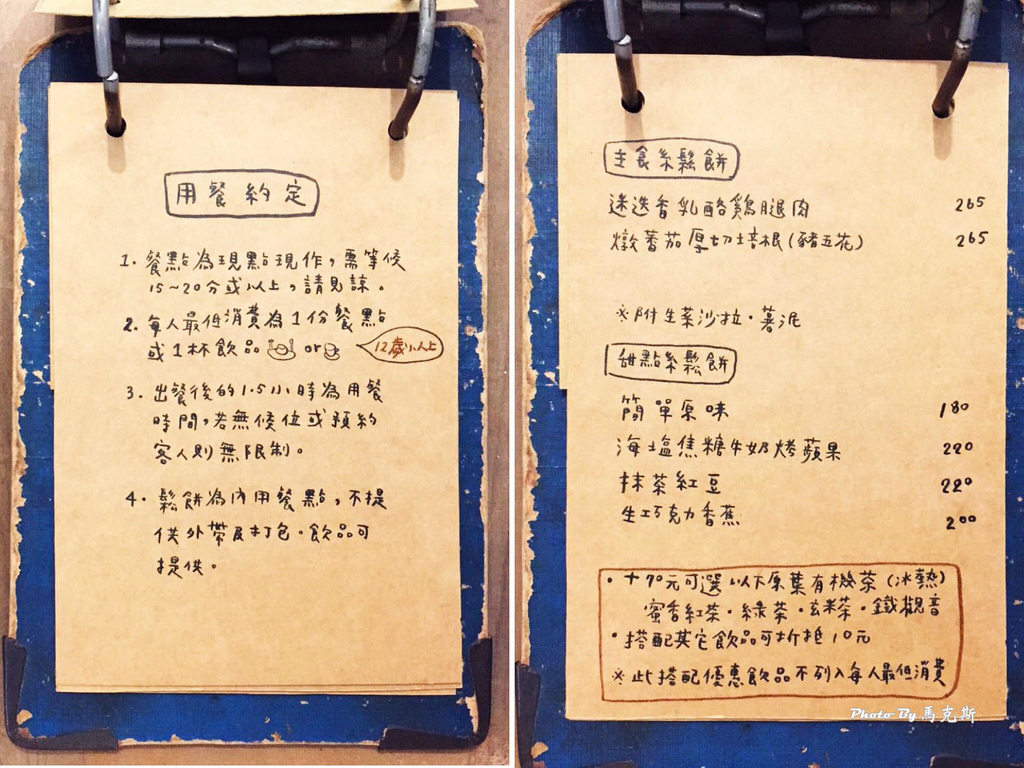 用餐約定
1. 餐點為現點現作，需等候
15~20分或以上，請見諒。
2. 每人最低消費為1份餐點
或1杯飲品 or
12歲以上
3. 出餐後的1.5小時為用餐
時間，若無候位或預約
客人則無限制。
4. 鬆餅為內用餐點，不提
供外帶及打包。飲品可
提供。
主食系鬆餅
迷迭香乳酪雞腿肉 265
燉蕃茄厚切培根(豬五花) 265
※附生菜沙拉・薯泥
甜點系鬆餅
簡單原味 180
海塩焦糖牛奶烤蘋果 220
抹茶紅豆 220
生巧克力香蕉 200
・+70元可選以下原葉有機茶(冰熱)
蜜香紅茶・綠茶・玄米茶・鐵觀音
・搭配其它飲品可折抵10元
※此搭配優惠飲品不列入每人最低消費
Photo By 馬克斯